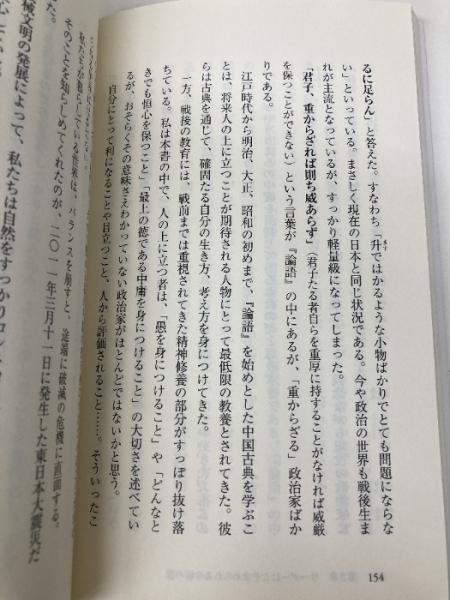 るに足らん」と答えた。すなわち「升ではかるような小物ばかりでとても問題にならな
い」といっている。まさしく現在の日本と同じ状況である。今や政治の世界も戦後生ま
れが主流となっているが、すっかり軽量級になってしまった。
「君子、重からざれば則ち威あらず」(君子たる者自らを重厚に持することがなければ威厳
を保つことができない)という言葉が『論語』の中にあるが、「重からざる」政治家ばか
りである。
江戸時代から明治、大正、昭和の初めまで、『論語』を始めとした中国古典を学ぶこ
とは、将来人の上に立つことが期待される人物にとって最低限の教養とされてきた。彼
らは古典を通じて、確固たる自分の生き方、考え方を身につけてきた。
一方、戦後の教育には、戦前までは重視されてきた精神修養の部分がすっぽり抜け落
ちている。私は本書の中で、人の上に立つ者は、「愚を身につけること」や「どんなと
きでも恒心を保つこと」「最上の徳である中庸を身につけること」の大切さを述べてい
るが、おそらくその意味さえわかっていない政治家がほとんどではないかと思う。
自分にとって利になることや目立つこと、人から評価されること……。そういったこ
154
世界は、バランスを崩すと、途端に破滅の危機に直面する。
そのことを知らしめてくれたのが、二〇一一年三月十一日に発生した東日本大震災だ
た。
械文明の発展によって、私たちは自然をすっかりコン